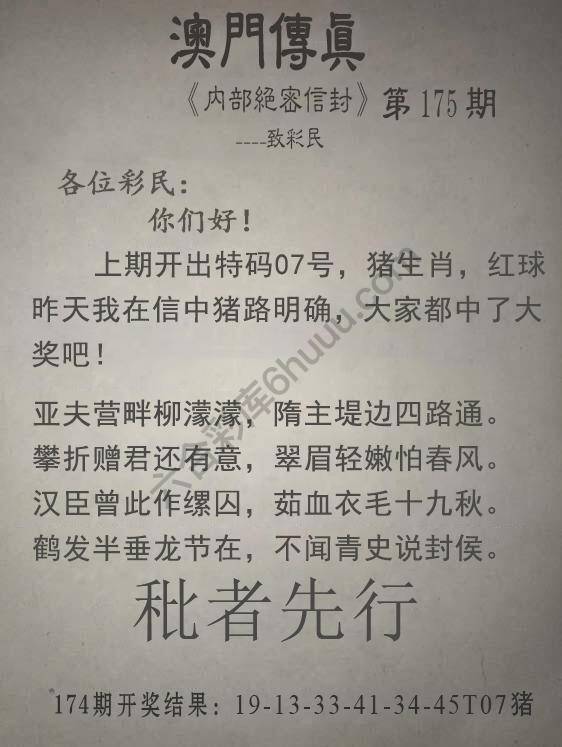 澳門傳眞
《内部絕密信封》第175期
----致彩民
各位彩民：
你们好！
上期开出特码07号，猪生肖，红球
昨天我在信中猪路明确，大家都中了大
奖吧！
亚夫营畔柳濛濛，隋主堤边四路通。
攀折赠君还有意，翠眉轻嫩怕春风。
汉臣曾此作缧囚，茹血衣毛十九秋。
鹤发半垂龙节在，不闻青史说封侯。
秕者先行
174期开奖结果：19-13-33-41-34-45T07猪
六合彩库6huuu.com